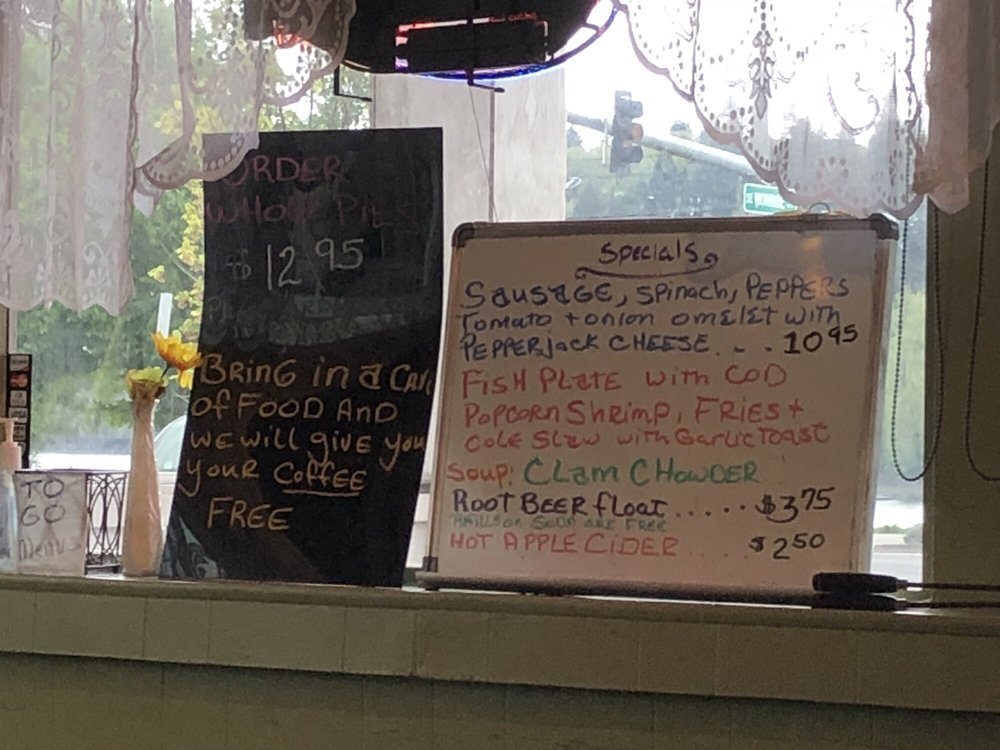 ORDER
WHOLE PIE
$12.95
BRING in a CAN
OF FOOD AND
WE WILL give You
YOUR COFFEE
FREE
TO
GO
Menus
Specials
SausaGE, Spinach, PEPPERS
Tomato + onion omelet with
PEPPERJack CHEESE . . . 10 95
FISH PLATE with COD
POPCORN Shrimp, FRIES +
COLE Slaw with Garlic Toast
Soup: Clam CHOWDER
ROOT BEER Float ..... $3 75
REFILLS on SODA ARE FREE
HOT APPLE CIDER .... $2 50
SE